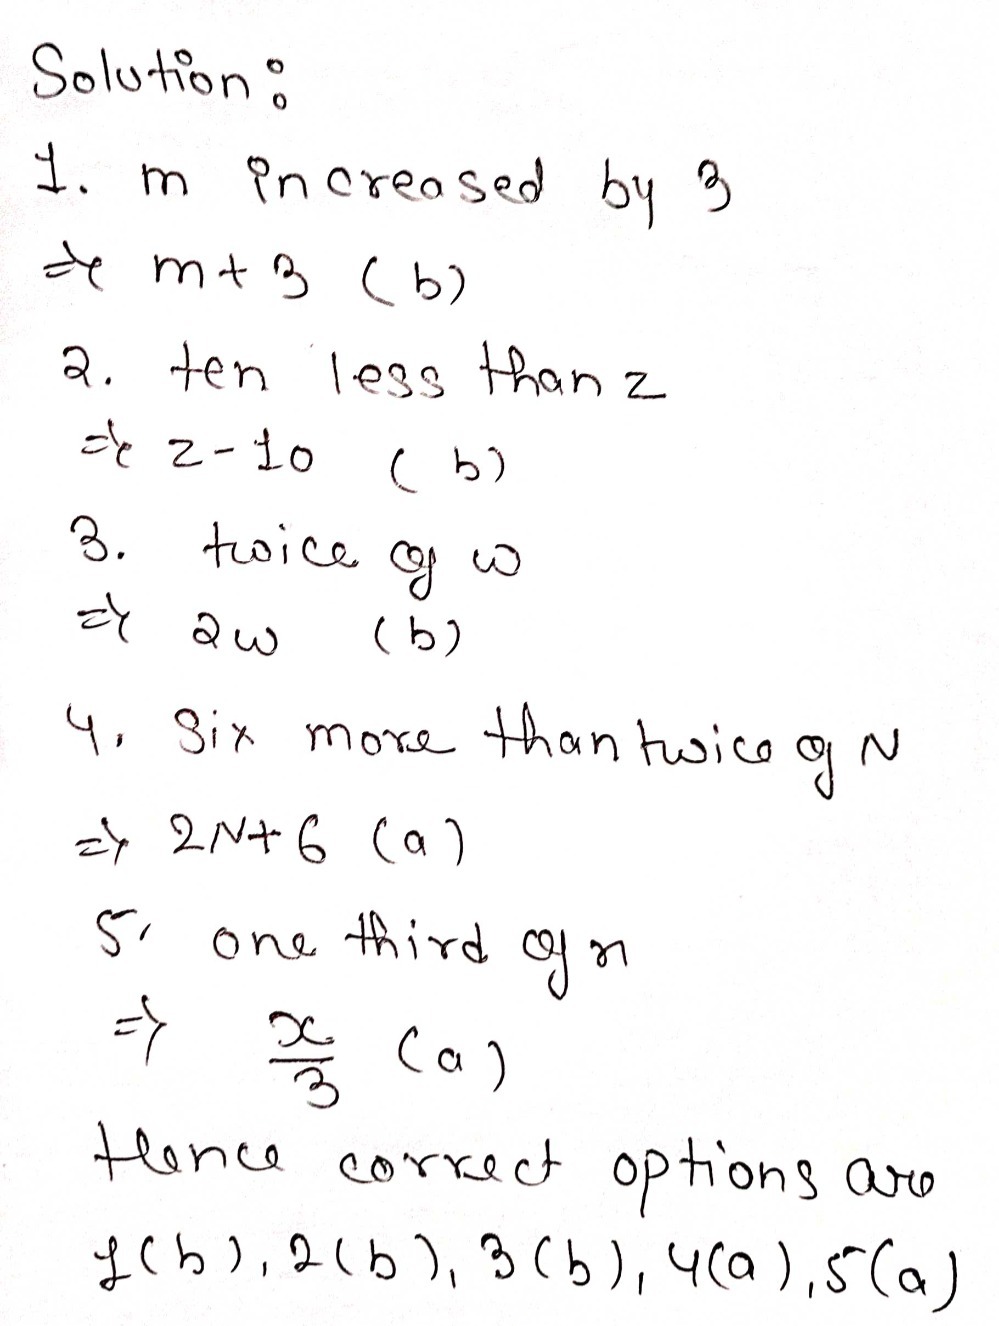 Solution:
1. m increased by 3
⇒ m+3 (b)
2. ten less than z
⇒ z-10 (b)
3. twice of w
⇒ 2w (b)
4. Six more than twice of N
⇒ 2N+6 (a)
5. one third of x
⇒ x/3 (a)
Hence correct options are
1(b), 2(b), 3(b), 4(a), 5(a)